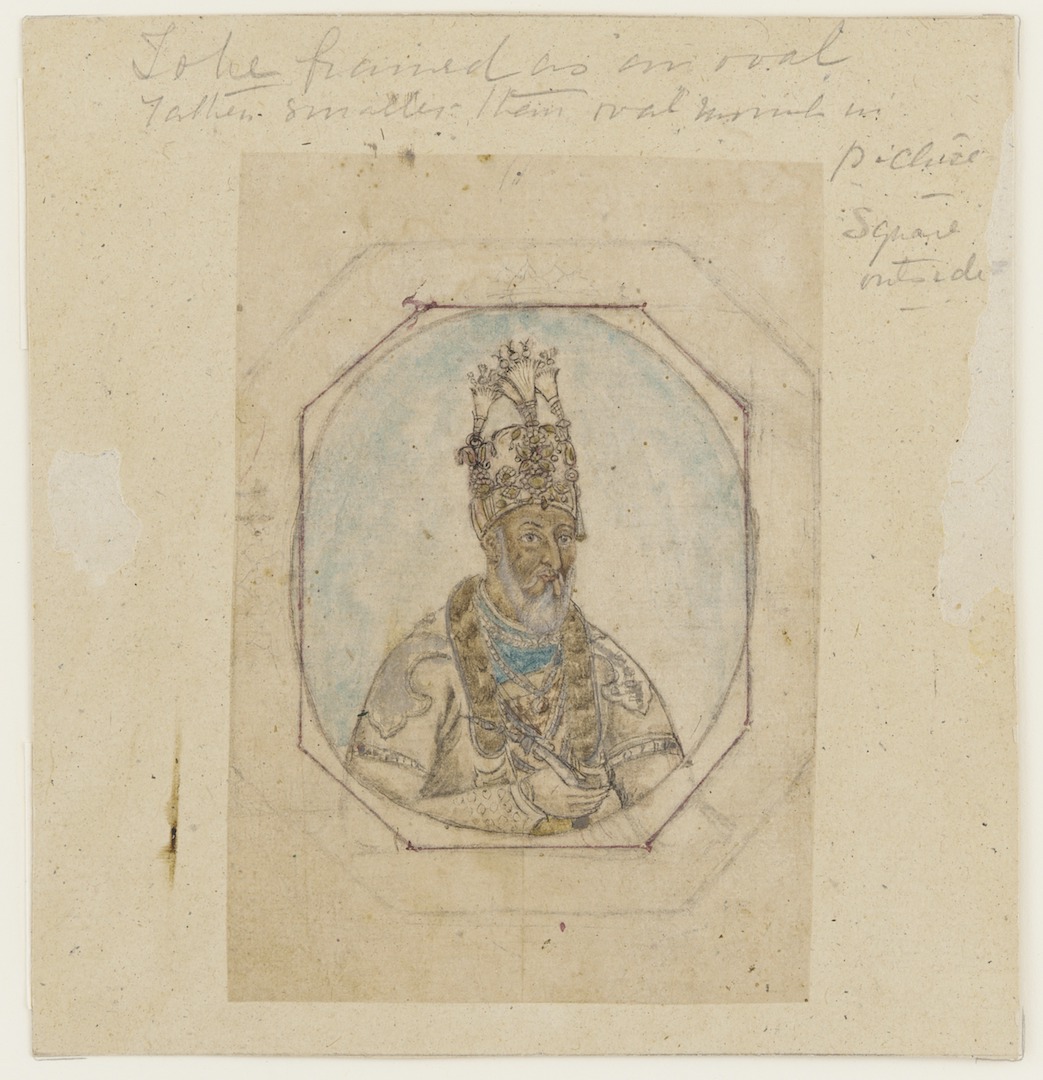 To be framed as an oval
rather smaller than oval mount in
picture
Square
outside